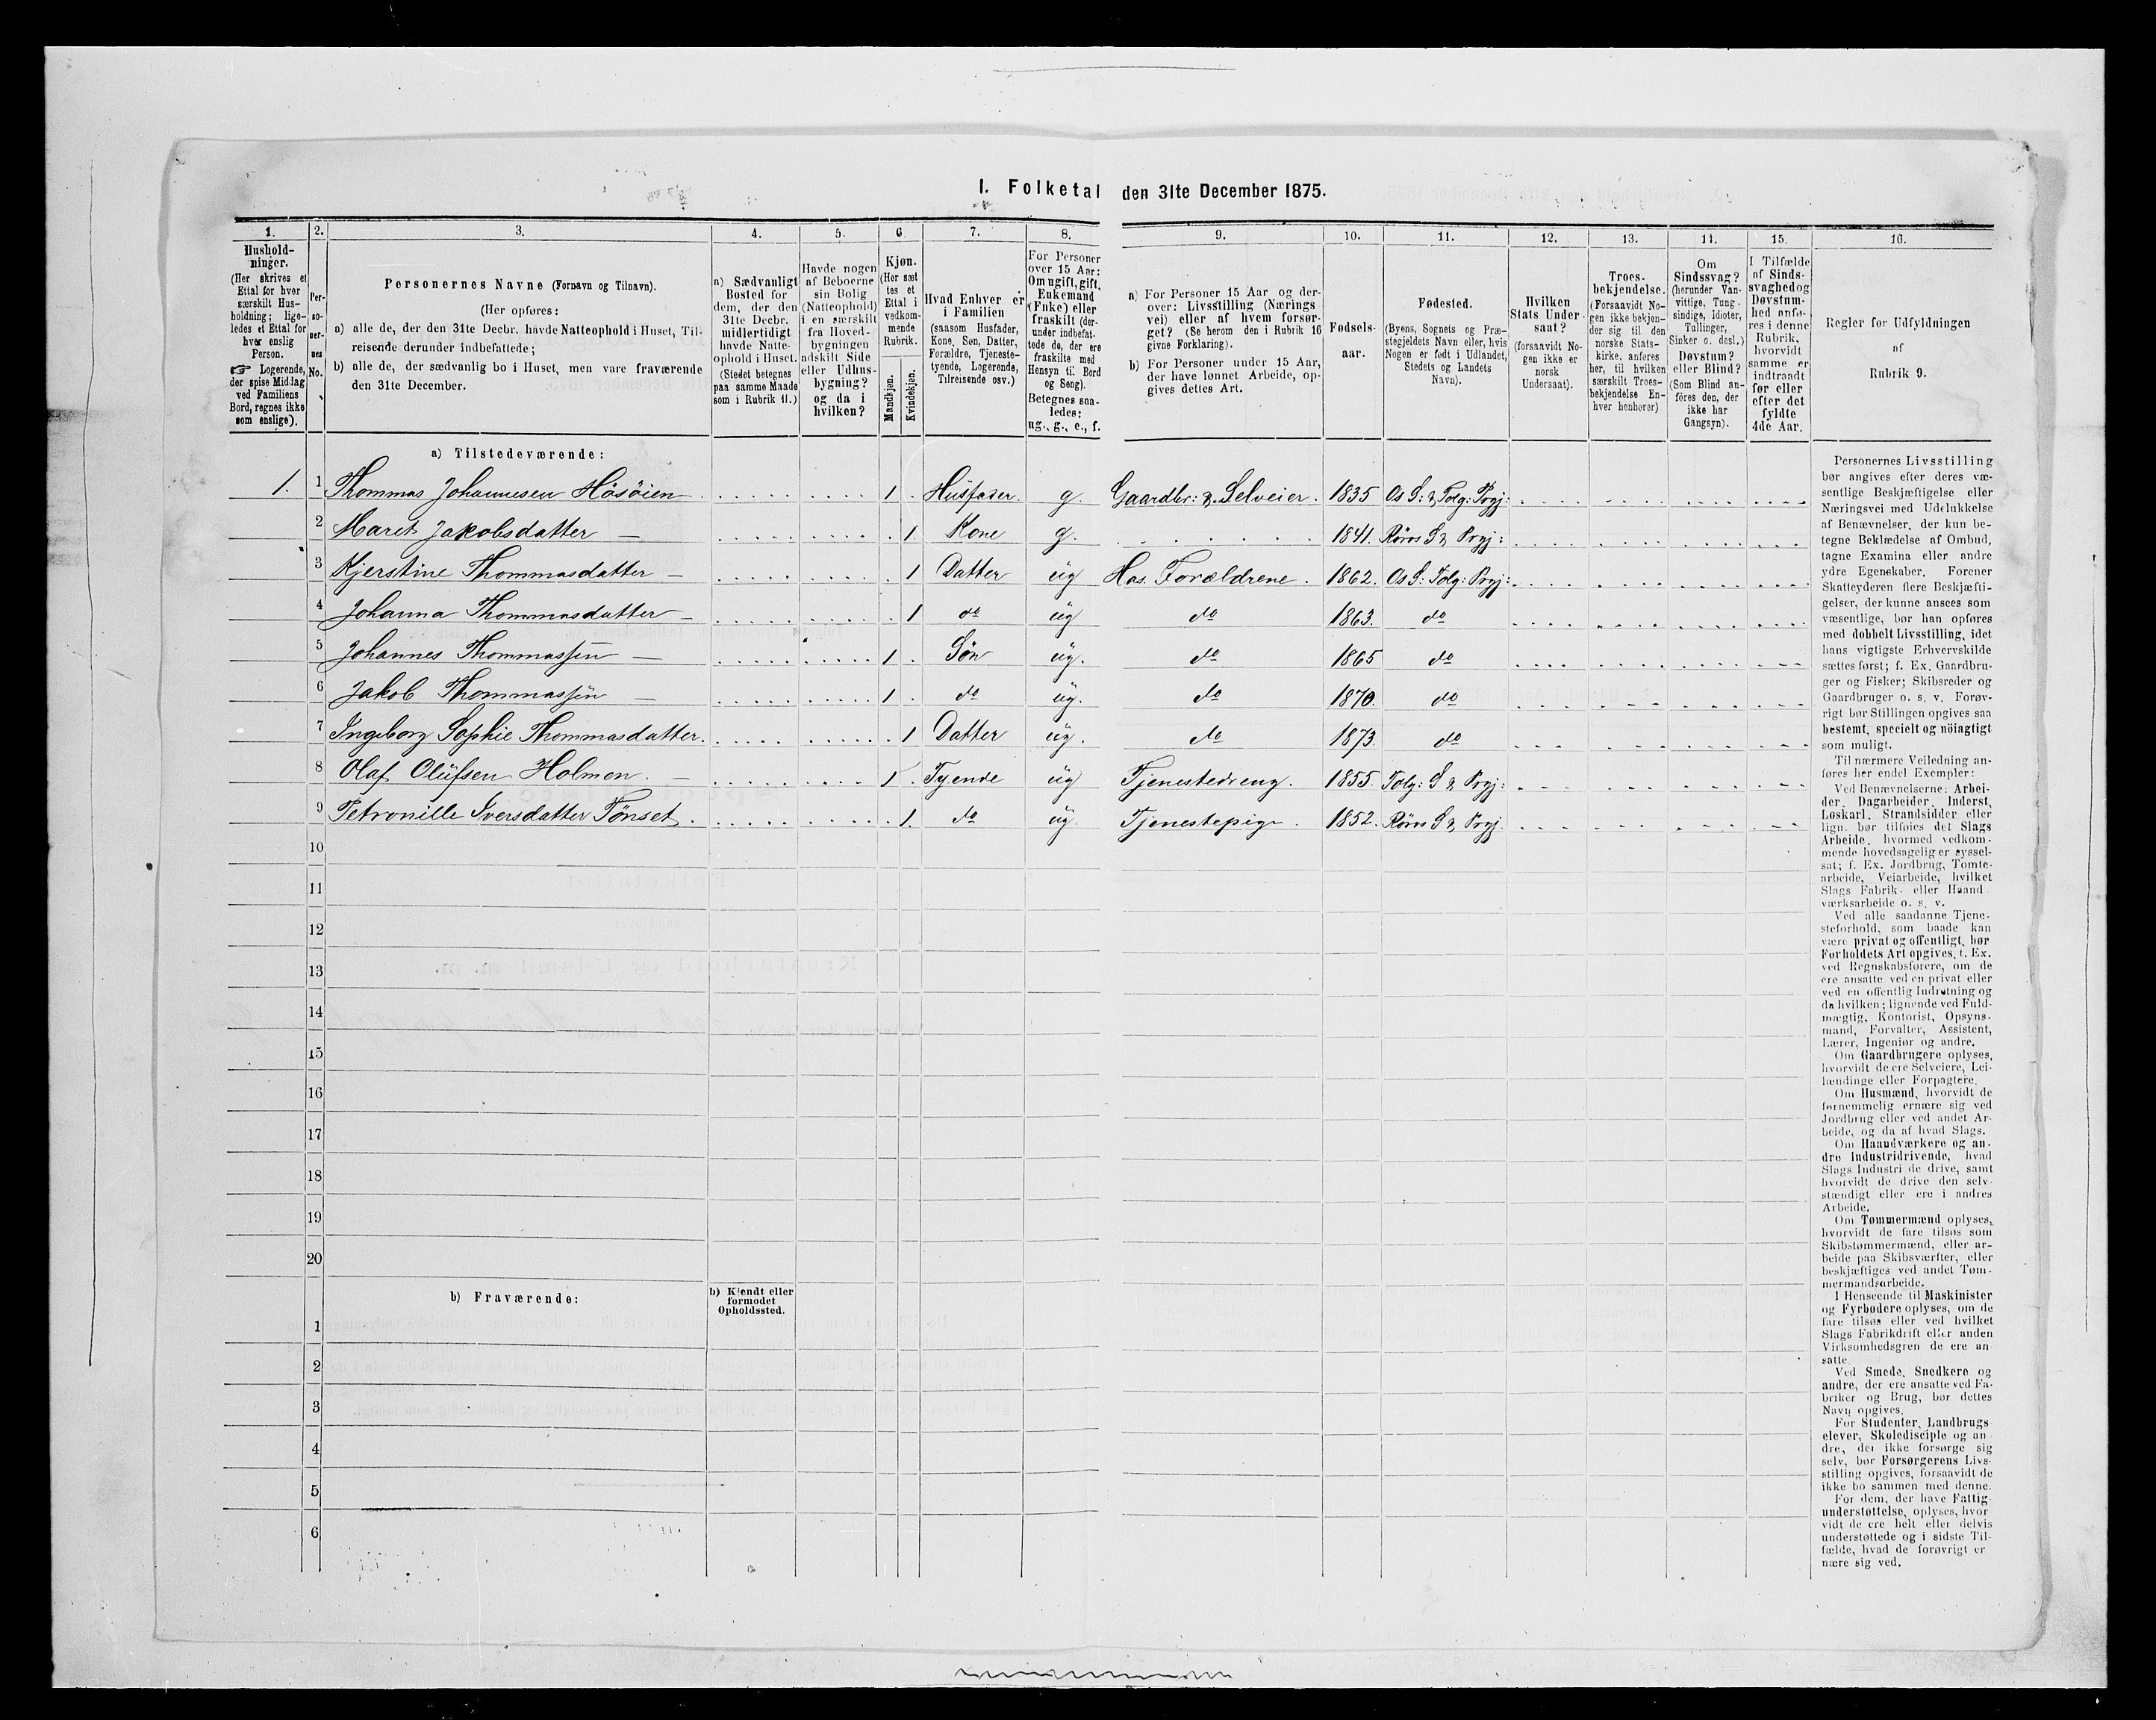 I. Folketal den 31te December 1875.
1.
Hushold-
ninger.
(Her skrives et
Ettal for hver
særskilt Hus-
holdning; lige-
ledes et Ettal for
hver enslig
Person.
☞ Logerende,
der spise Middag
ved Familiens
Bord, regnes ikke
som enslige).
2.
Per-
so-
ner-
nes
No.
3.
Personernes Navne (Fornavn og Tilnavn).
(Her opføres:
a) alle de, der den 31te Decbr. havde Natteophold i Huset, Til-
reisende derunder indbefattede;
b) alle de, der sædvanlig bo i Huset, men vare fraværende
den 31te December.
4.
a) Sædvanligt
Bosted for
dem, der den
31te Decbr.
midlertidigt
havde Natte-
ophold i Huset.
(Stedet betegnes
paa samme Maade
som i Rubrik 11.)
5.
Havde nogen
af Beboerne
sin Bolig
(Natteophold)
i en særskilt
fra Hoved-
bygningen
adskilt Side
eller Udhus-
bygning?
og da i
hvilken?
6.
Kjøn.
(Her sæt
tes et
Ettal i
vedkom-
mende
Rubrik.
Mandkjøn.
Kvindekjøn.
7.
Hvad Enhver er
i Familien
(saasom Husfader,
Kone, Søn, Datter,
Forældre, Tjeneste-
tyende, Logerende,
Tilreisende osv.)
8.
For Personer
over 15 Aar:
Om ugift, gift,
Enkemand
(Enke) eller
fraskilt (der-
under indbefat-
tede de, der ere
fraskilte med
Hensyn til Bord
og Seng).
Betegnes saa-
ledes:
ug., g., e., f.
9.
a) For Personer 15 Aar og der-
over: Livsstilling (Nærings
vei) eller af hvem forsør-
get? (Se herom den i Rubrik 16
givne Forklaring).
b) For Personer under 15 Aar,
der have lønnet Arbeide, op-
gives dettes Art.
10.
Fødsels-
aar.
11.
Fødested.
(Byens, Sognets og Præ-
stegjeldets Navn eller, hvis
Nogen er født i Udlandet,
Stedets og Landets
Navn).
12.
Hvilken
Stats Under-
saat?
(forsaavidt No-
gen ikke er
norsk
Undersaat).
13.
Troes-
bekjendelse.
(Forsaavidt No-
gen ikke bekjen-
der sig til den
norske Stats-
kirke, anføres
her, til hvilken
særskilt Troes-
bekjendelse En-
hver henhører)
14.
Om
Sindssvag?
(herunder Van-
vittige, Tung-
sindige, Idioter,
Tullinger,
Sinker o. desl.)
Døvstum?
eller Blind?
(Som Blind an-
föres den, der
ikke har
Gangsyn).
15.
I Tilfælde
af Sinds-
svaghed og
Døvstum-
hed anfø-
res i denne
Rubrik,
hvorvidt
samme er
indtraadt
før eller
efter det
fyldte
4de Aar.
16.
Regler for Udfyldningen
af
Rubrik 9.
a) Tilstedeværende:
1. 1 Thommas Johannesen Høsøien 1 Husfader g. Gaardbr: & Selveier. 1835 Os S: & Tolg: Prgj:
2 Maret Jakobsdatter 1 Kone g. 1841. Røros S & Prgj:
3 Kjerstine Thommasdatter 1 Datter ug Hos Forældrene. 1862. Os S: Tolg: Prgj:
4 Johanna Thommasdatter 1 do ug do 1863. do
5 Johannes Thommassen 1 Søn ug. do 1865 do
6 Jakob Thommassen 1 do ug. do 1870. do
7 Ingeborg Sophie Thommasdatter. 1 Datter ug. do 1873. do
8 Olaf Olufsen Holmen. 1 Tyende ug Tjenestedreng. 1855. Tolg: S & Prgj:
9 Petronille Iversdatter Tönset. 1. do ug. Tjenestepige. 1852. Røros S & Prgj.
10
11
12
13
14
15
16
17
18
19
20
b) Fraværende:
b) Kjendt eller
formodet
Opholdssted.
1
2
3
4
5
6
Personernes Livsstilling
bør angives efter deres væ-
sentlige Beskjæftigelse eller
Næringsvei med Udelukkelse
af Benævnelser, der kun be-
tegne Beklædelse af Ombud,
tagne Examina eller andre
ydre Egenskaber. Forener
Skatteyderen flere Beskjæfti-
gelser, der kunne ansees som
væsentlige, bør han opføres
med dobbelt Livsstilling, idet
hans vigtigste Erhvervskilde
sættes først; f. Ex. Gaardbru-
ger og Fisker; Skibsreder og
Gaardbruger o. s. v. Forøv-
rigt bør Stillingen opgives saa
bestemt, specielt og nöiagtigt
som muligt.
Til nærmere Veiledning an-
føres her endel Exempler:
Ved Benævnelserne: Arbei-
der, Dagarbeider, Inderst,
Løskarl, Strandsidder eller
lign. bør tilføies det Slags
Arbeide, hvormed vedkom-
mende hovedsagelig er syssel-
sat; f. Ex. Jordbrug, Tomte-
arbeide, Veiarbeide, hvilket
Slags Fabrik- eller Haand-
værksarbeide o. s. v.
Ved alle saadanne Tjene-
steforhold, som baade kan
være privat og offentligt, bør
Forholdets Art opgives, f. Ex.
ved Regnskabsførere, om de
ere ansatte ved en privat eller
ved en offentlig Indretning og
da hvilken; lignende ved Fuld-
mægtig, Kontorist, Opsyns-
mand, Forvalter, Assistent,
Lærer, Ingeniør og andre.
Om Gaardbrugere oplyses,
hvorvidt de ere Selveiere, Lei-
lændinge eller Forpagtere.
Om Husmænd, hvorvidt de
fornemmelig ernære sig ved
Jordbrug eller ved andet Ar-
beide, og da af hvad Slags.
Om Haandværkere og an-
dre Industridrivende, hvad
Slags Industri de drive, samt
hvorvidt de drive den selv-
stændigt eller ere i andres
Arbeide.
Om Tømmermænd oplyses,
hvorvidt de fare tilsøs som
Skibstømmermænd, eller ar-
beide paa Skibsværfter, eller
beskjæftiges ved andet Tøm-
mermandsarbeide.
I Henseende til Maskinister
og Fyrbødere oplyses, om de
fare tilsøs eller ved hvilket
Slags Fabrikdrift eller anden
Virksomhedsgren de ere an-
satte.
Ved Smede, Snedkere og
andre, der ere ansatte ved Fa-
briker og Brug, bør dettes
Navn opgives.
For Studenter, Landbrugs-
elever, Skoledisciple og an-
dre, der ikke forsørge sig
selv, bør Forsørgerens Livs-
stilling opgives, forsaavidt de
ikke bo sammen med denne.
For dem, der have Fattig-
understøttelse, oplyses, hvor-
vidt de ere helt eller delvis
understøttede og i sidste Til-
fælde, hvad de forøvrigt er
nære sig ved.